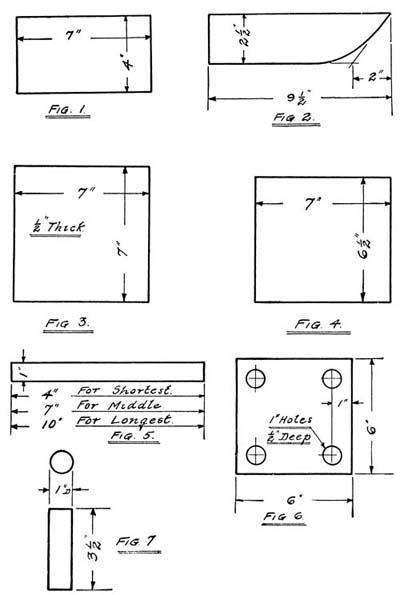 7"
4"
FIG. 1.
2½"
2"
9½"
FIG 2.
7"
½" Thick
7"
FIG 3.
7"
6½"
FIG. 4.
1"
4" For Shortest.
7" For Middle
10" For Longest.
FIG. 5.
1"
1" Holes
½" Deep
6"
6"
FIG 6.
1"D
3½"
FIG 7